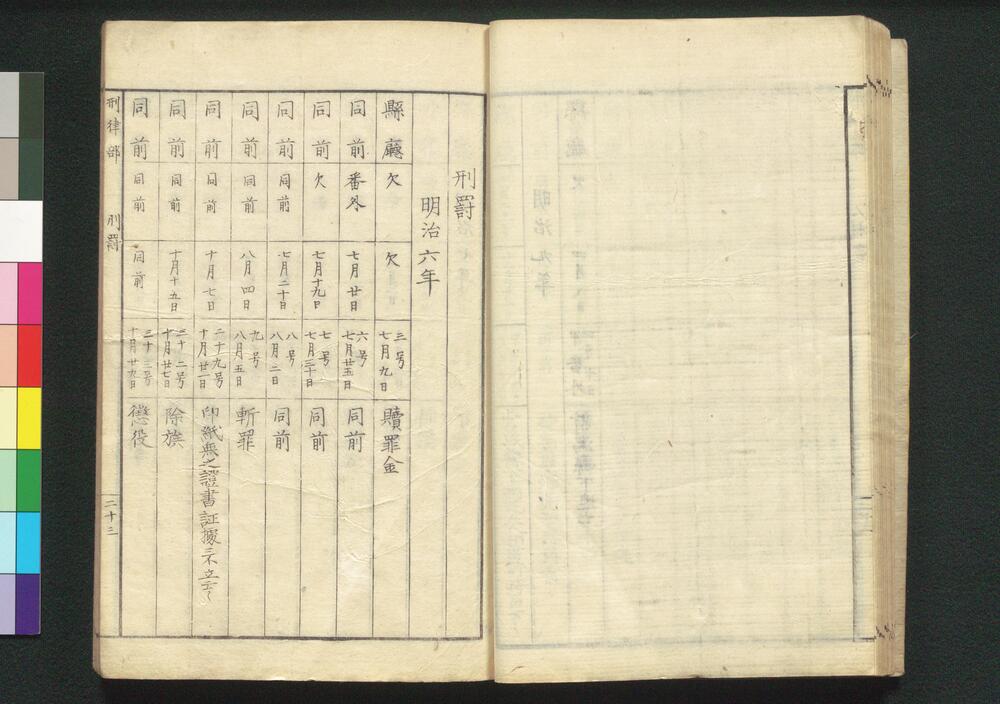 刑罰
明治六年
縣廳 欠 欠 三号 七月九日 贖罪金
同前 番外 七月廿日 六号 七月廿五日 同前
同前 欠 七月十九日 七号 七月三十日 同前
同前 同前 七月二十日 八号 八月二日 同前
同前 同前 八月四日 九号 八月五日 斬罪
同前 同前 十月七日 二十九号 十月廿一日 印紙無之證書証拠ニ不立云々
同前 同前 十月十五日 三十二号 十月廿七日 除族
同前 同前 同前 三十三号 十月廿九日 懲役
刑律部 刑罰 二十三
明治九年